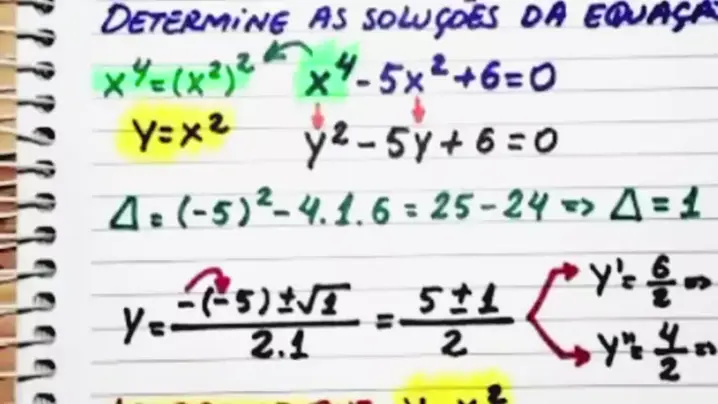 DETERMINE AS SOLUÇÕES DA
x⁴=(x²)² x⁴-5x²+6=0
Y=x² y²-5y+6=0
Δ=(-5)²-4.1.6=25-24=>Δ=1
Y= -(-5)±√1 / 2.1 = 5±1 / 2 Y'= 6/2 =>
Y"= 4/2 =>